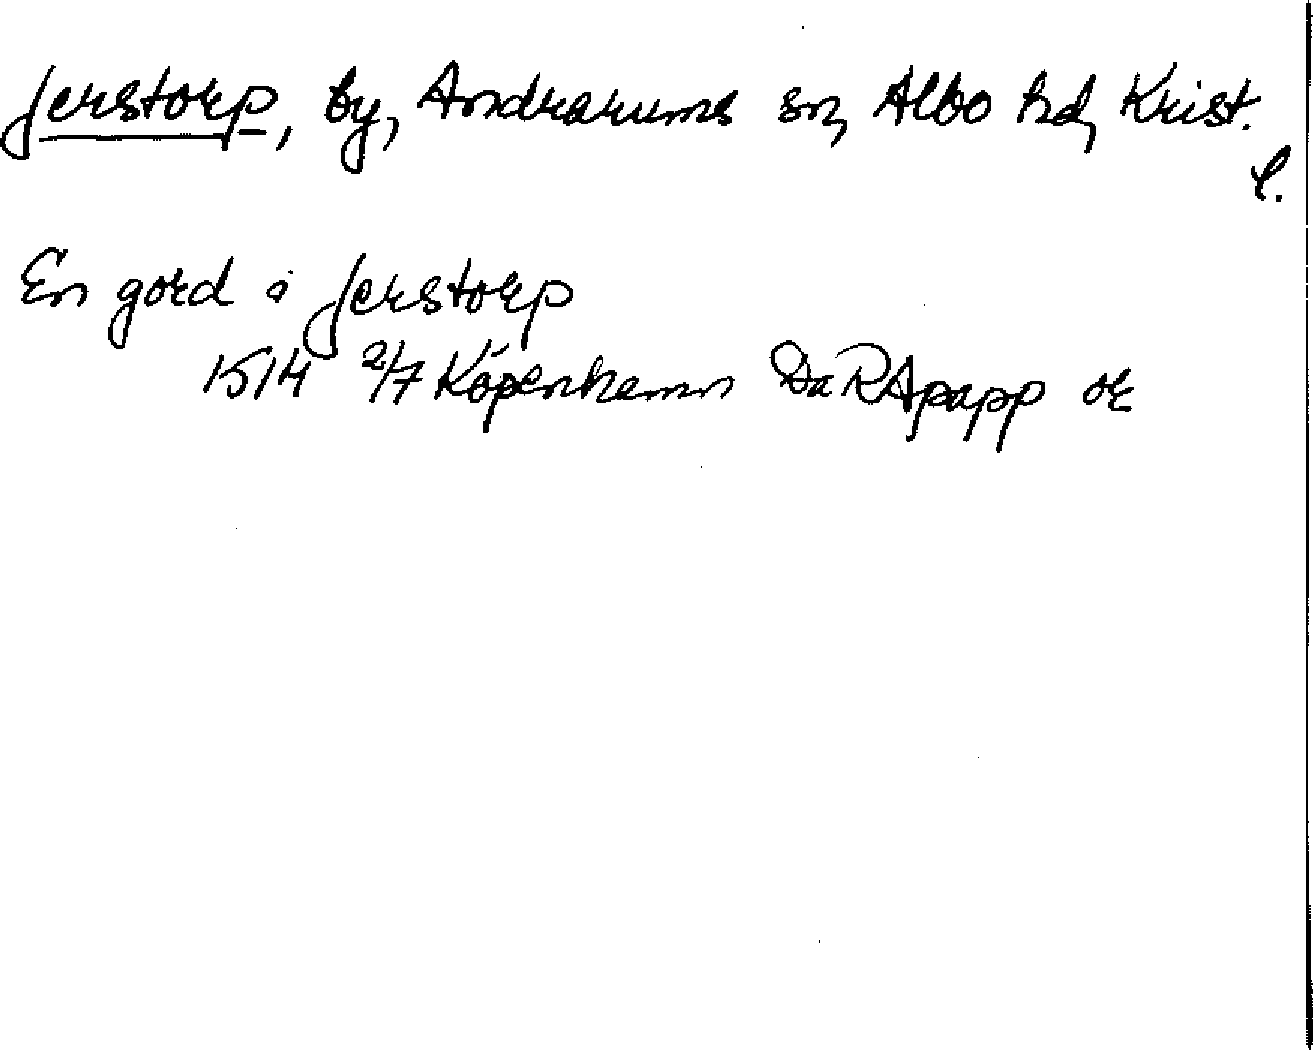 Jerstorp, by, Andrarums sn, Albo hd, Krist.
l.
En gord i Jerstorp
1514 2/7 Köpenhamn Da RApapp or